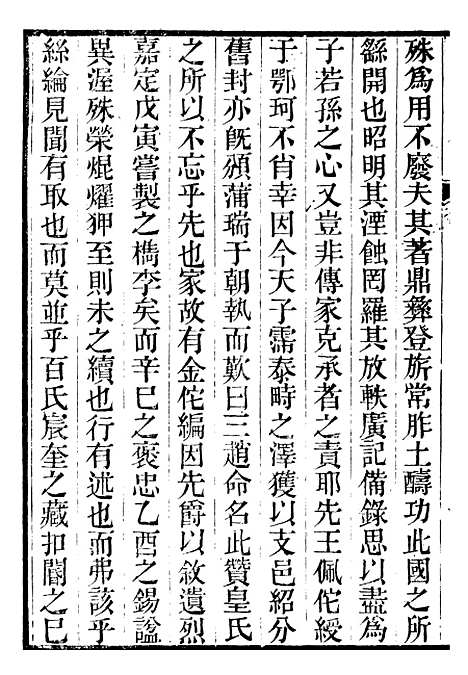 殊爲用不廢夫其著鼎彝登旂常胙土疇功此國之所
繇開也昭明其湮蝕罔羅其放軼廣記備錄思以盡爲
子若孫之心又豈非傳家克承者之責耶先王佩佗綬
于鄂珂不肖幸因今天子霈泰畤之澤獲以支邑紹分
舊封亦旣頒蒲瑞于朝執而歎曰三趙命名此贊皇氏
之所以不忘乎先也家故有金佗編因先爵以敘遺烈
嘉定戊寅嘗製之檇李矣而辛巳之襃忠乙酉之錫諡
異渥殊榮焜燿狎至則未之續也行有述也而弗該乎
絲綸見聞有取也而莫並乎百氏宸奎之藏扣閽之已